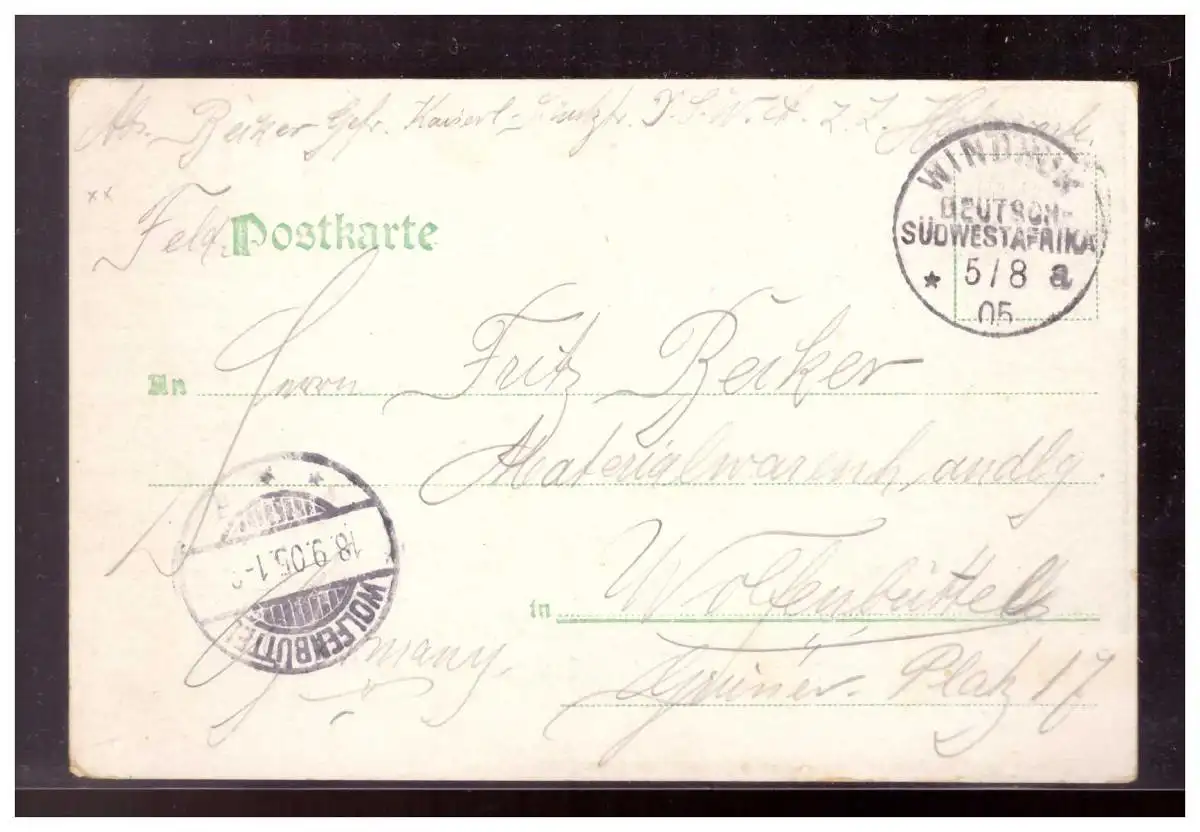 Abs. Beiker Gefr. Kaiserl. Schutztr. D.S.W.A. z.Z.
Feld Postkarte
WINDHUK
DEUTSCH-
SÜDWESTAFRIKA
* 5/8 a
05
An Herrn Fritz Beiker
Materialwarenhandlg.
in Wolfenbüttel
Grüner. Platz 17
Germany.
WOLFENBÜTTEL
18.9.05.1-